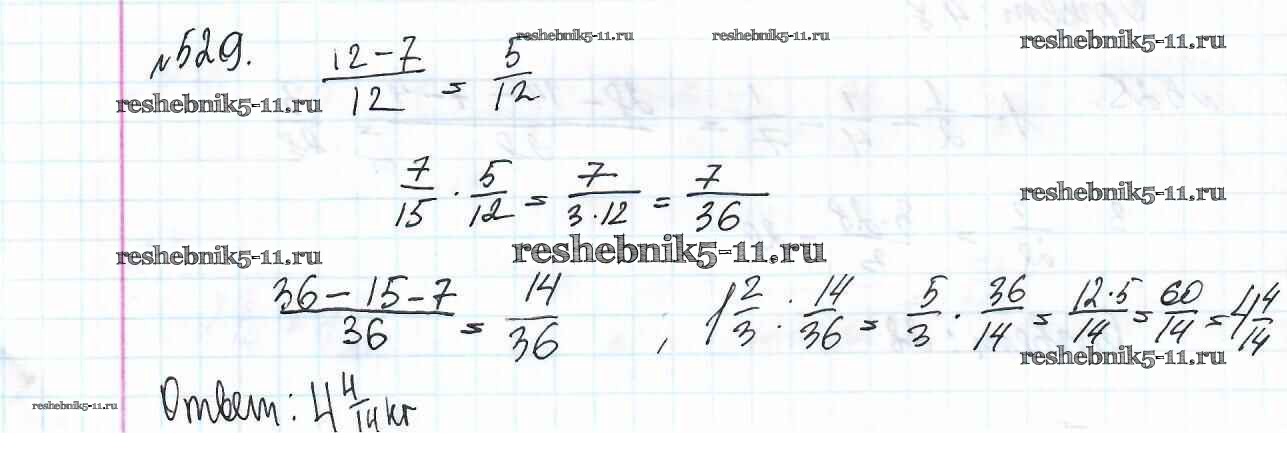 reshebnik5-11.ru reshebnik5-11.ru reshebnik5-11.ru
№529. (12-7)/12 = 5/12
reshebnik5-11.ru
7/15 · 5/12 = 7/(3·12) = 7/36
reshebnik5-11.ru
reshebnik5-11.ru reshebnik5-11.ru
(36-15-7)/36 = 14/36 ; 1 2/3 : 14/36 = 5/3 · 36/14 = (12·5)/14 = 60/14 = 4 4/14
reshebnik5-11.ru
reshebnik5-11.ru
Ответ: 4 4/14 кг